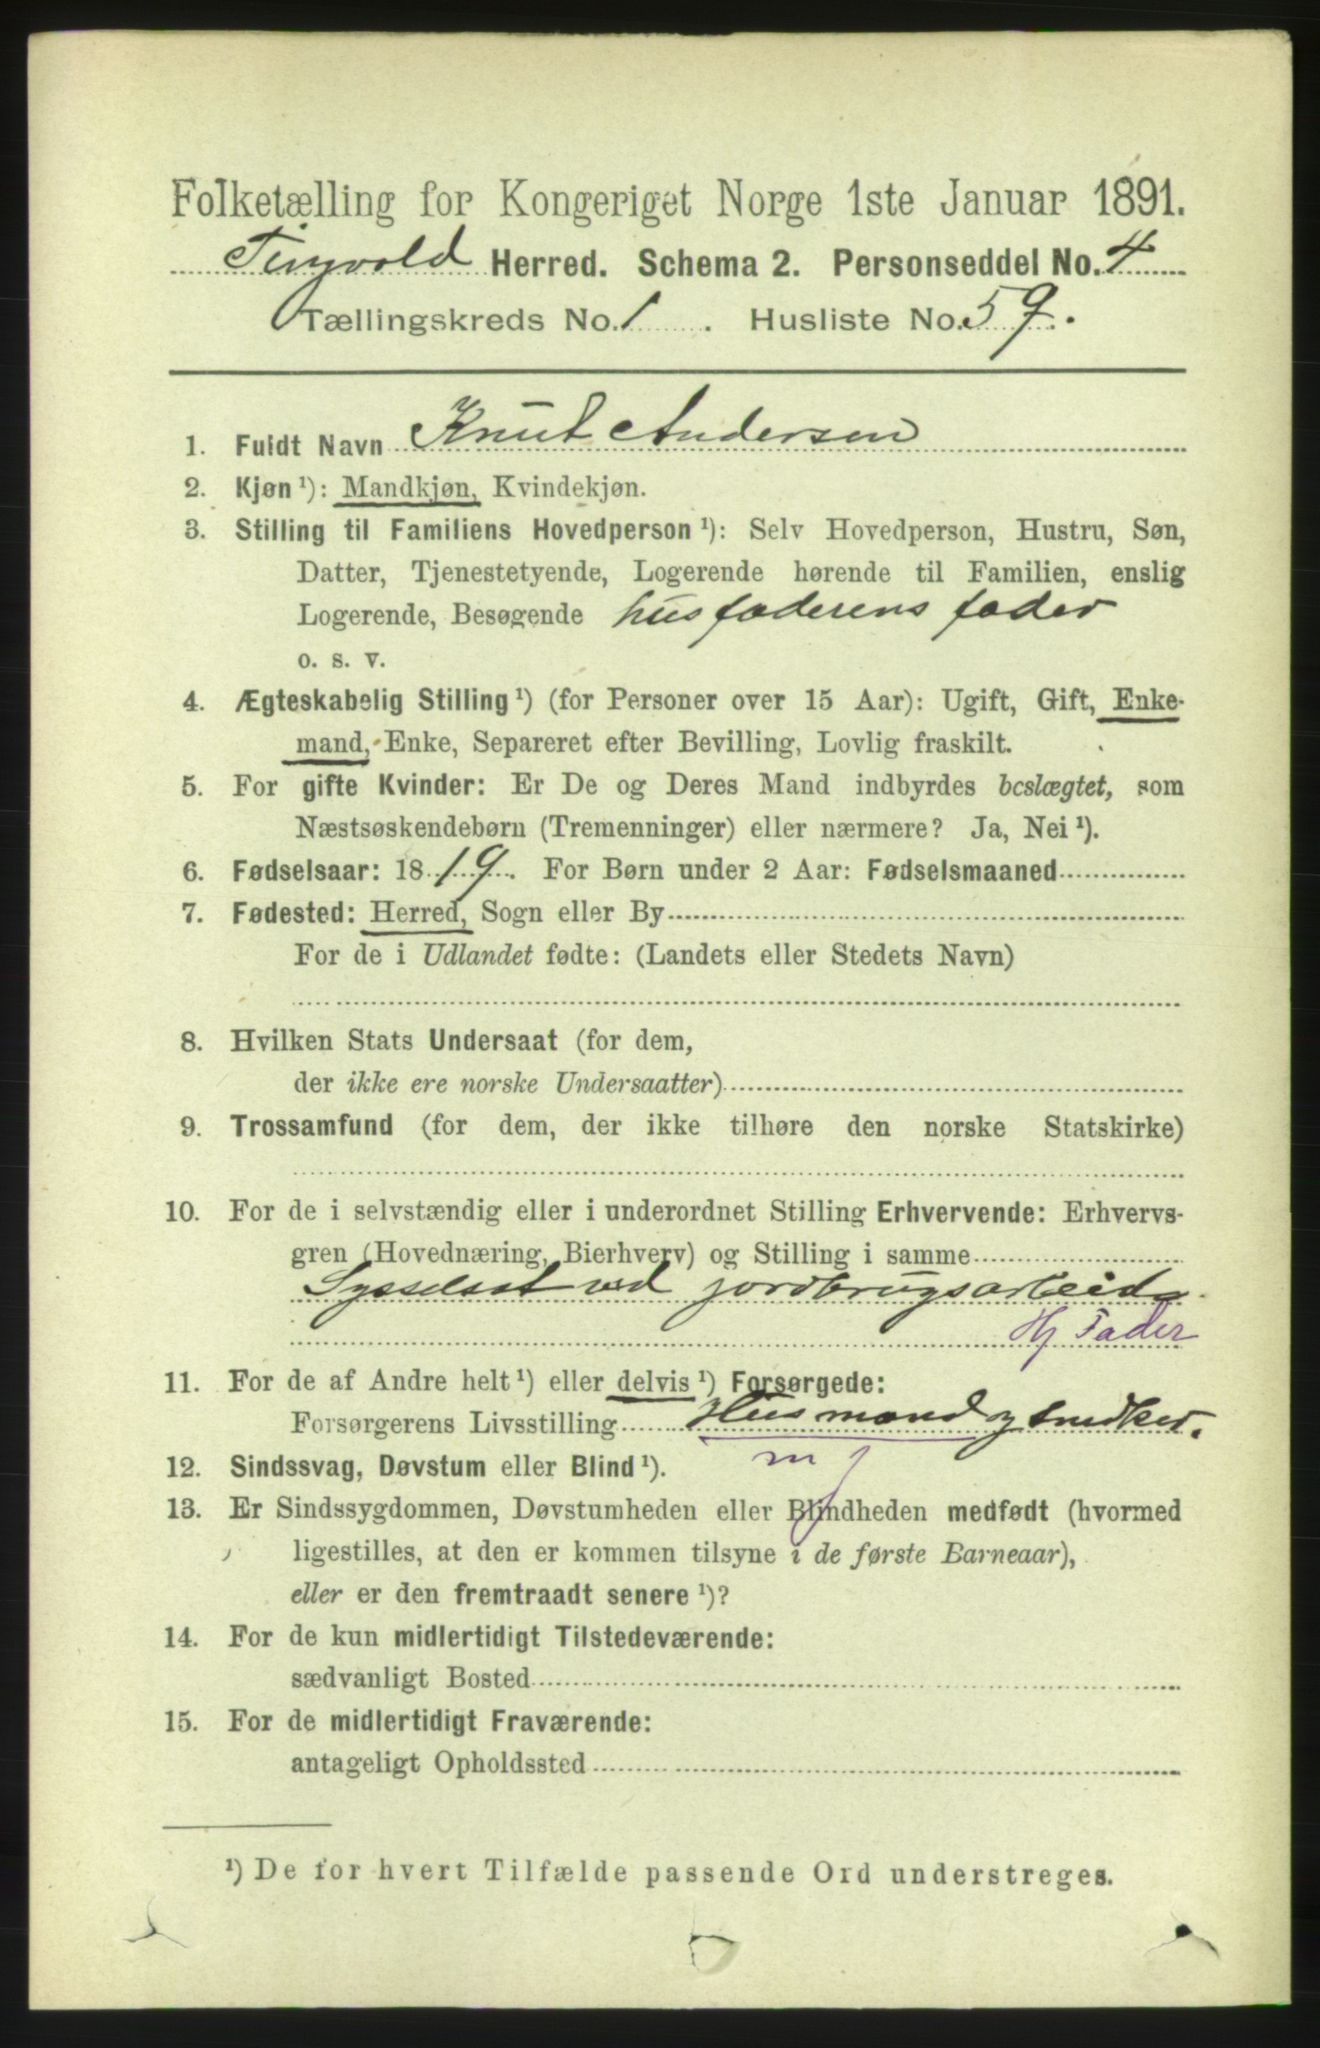 Folketælling for Kongeriget Norge 1ste Januar 1891.
Tingvold Herred. Schema 2. Personseddel No. 4
Tællingskreds No. 1. Husliste No. 59.
1. Fuldt Navn Knut Andersen
2. Kjøn ¹): Mandkjøn, Kvindekjøn.
3. Stilling til Familiens Hovedperson ¹): Selv Hovedperson, Hustru, Søn,
Datter, Tjenestetyende, Logerende hørende til Familien, enslig
Logerende, Besøgende husfaderens fader
o. s. v.
4. Ægteskabelig Stilling ¹) (for Personer over 15 Aar): Ugift, Gift, Enke-
mand, Enke, Separeret efter Bevilling, Lovlig fraskilt.
5. For gifte Kvinder: Er De og Deres Mand indbyrdes beslægtet, som
Næstsøskendebørn (Tremenninger) eller nærmere? Ja, Nei ¹).
6. Fødselsaar: 1819. For Børn under 2 Aar: Fødselsmaaned
7. Fødested: Herred, Sogn eller By
For de i Udlandet fødte: (Landets eller Stedets Navn)
8. Hvilken Stats Undersaat (for dem,
der ikke ere norske Undersaatter)
9. Trossamfund (for dem, der ikke tilhøre den norske Statskirke)
10. For de i selvstændig eller i underordnet Stilling Erhvervende: Erhvervs-
gren (Hovednæring, Bierhverv) og Stilling i samme
Sysselsat ved jordbrugsarbeide
Hj Fader
11. For de af Andre helt ¹) eller delvis ¹) Forsørgede:
Forsørgerens Livsstilling Husmand og snedker.
m j
12. Sindssvag, Døvstum eller Blind ¹).
13. Er Sindssygdommen, Døvstumheden eller Blindheden medfødt (hvormed
ligestilles, at den er kommen tilsyne i de første Barneaar),
eller er den fremtraadt senere ¹)?
14. For de kun midlertidigt Tilstedeværende:
sædvanligt Bosted
15. For de midlertidigt Fraværende:
antageligt Opholdssted
¹) De for hvert Tilfælde passende Ord understreges.